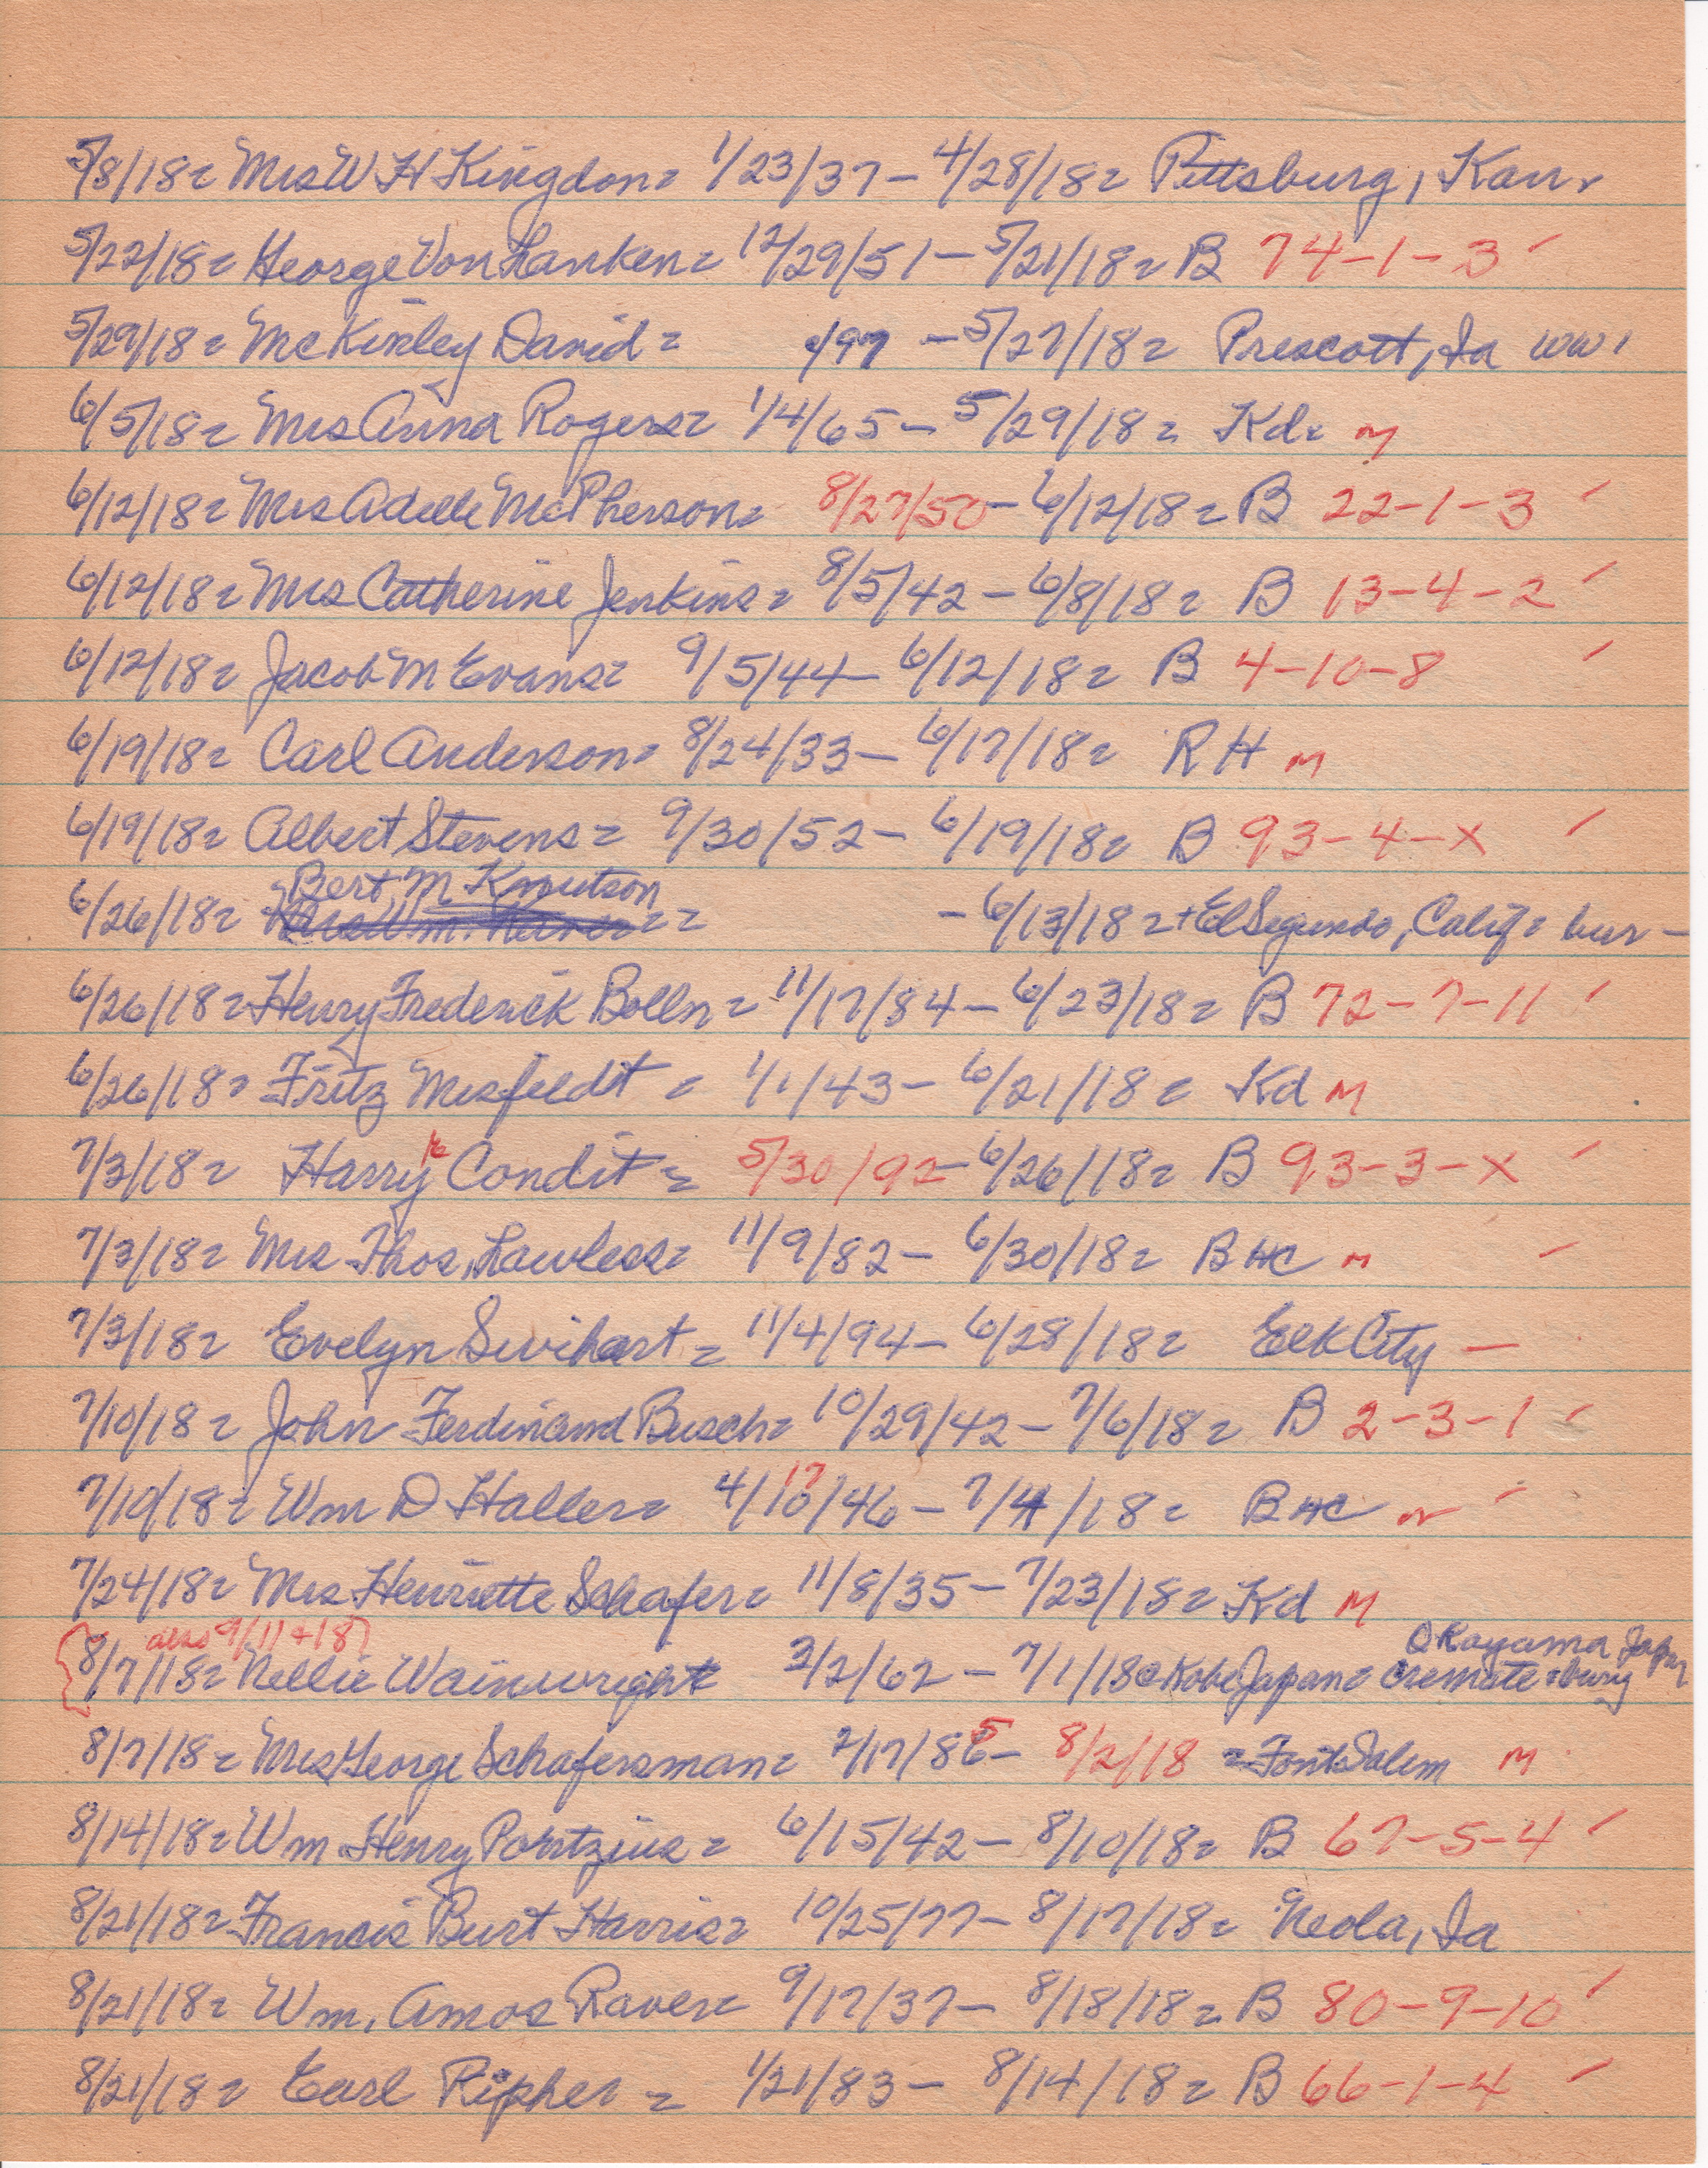 5/8/18= Mrs W H Kingdon= 1/23/37 - 4/28/18= Pittsburg, Kan.
5/22/18= George Von Lanken= 12/29/51 - 5/21/18= B 74-1-3 ′
5/29/18= McKinley David= /97 - 5/27/18= Prescott, Ia WW1
6/5/18= Mrs Anna Rogers= 1/4/65 - 5/29/18= Kd= M
6/12/18= Mrs Adelle McPherson= 8/27/50 - 6/12/18= B 22-1-3 ′
6/12/18= Mrs Catherine Jenkins= 8/5/42 - 6/8/18= B 13-4-2 ′
6/12/18= Jacob M Evans= 9/5/44 - 6/12/18= B 4-10-8 ′
6/19/18= Carl Anderson= 8/24/33 - 6/17/18= RH M
6/19/18= Albert Stevens= 9/30/52 - 6/19/18= B 93-4-X ′
Bert M Knutson
6/26/18= = - 6/13/18=+ El Segundo, Calif= bur -
6/26/18= Henry Frederick Bolln= 11/17/84 - 6/23/18= B 72-7-11 ′
6/26/18= Fritz Misfeldt= 1/1/43 - 6/21/18= Kd M
7/3/18= Harry E Condit= 5/30/92 - 6/26/18= B 93-3-X ′
7/3/18= Mrs Thos, Lawless= 11/9/82 - 6/30/18= B HC M ′
7/3/18= Evelyn Swihart= 11/4/94 - 6/28/18= Elk City -
7/10/18= John Ferdinand Busch= 10/29/42 - 7/6/18= B 2-3-1 ′
7/10/18= Wm D Haller= 4/10/46 17 - 7/4/18= B HC M ′
7/24/18= Mrs Henriette Schafer= 11/8/35 - 7/23/18= Kd M
also 9/11+18 Okayama Japan
8/7/18= Nellie Wainwright 3/2/62 - 7/1/18@ Kobe Japan= cremate+bury
8/7/18= Mrs George Schafersman= 2/17/86 5 - 8/2/18 = Font Salem M
8/14/18= Wm Henry Portzius= 6/15/42 - 8/10/18= B 67-5-4 ′
8/21/18= Francis Burt Harris= 10/25/77 - 8/17/18= Neola, Ia
8/21/18= Wm, Amos Raver= 9/17/37 - 8/18/18= B 80-9-10 ′
8/21/18= Earl Ripher= 1/21/83 - 8/14/18= B 66-1-4 ′